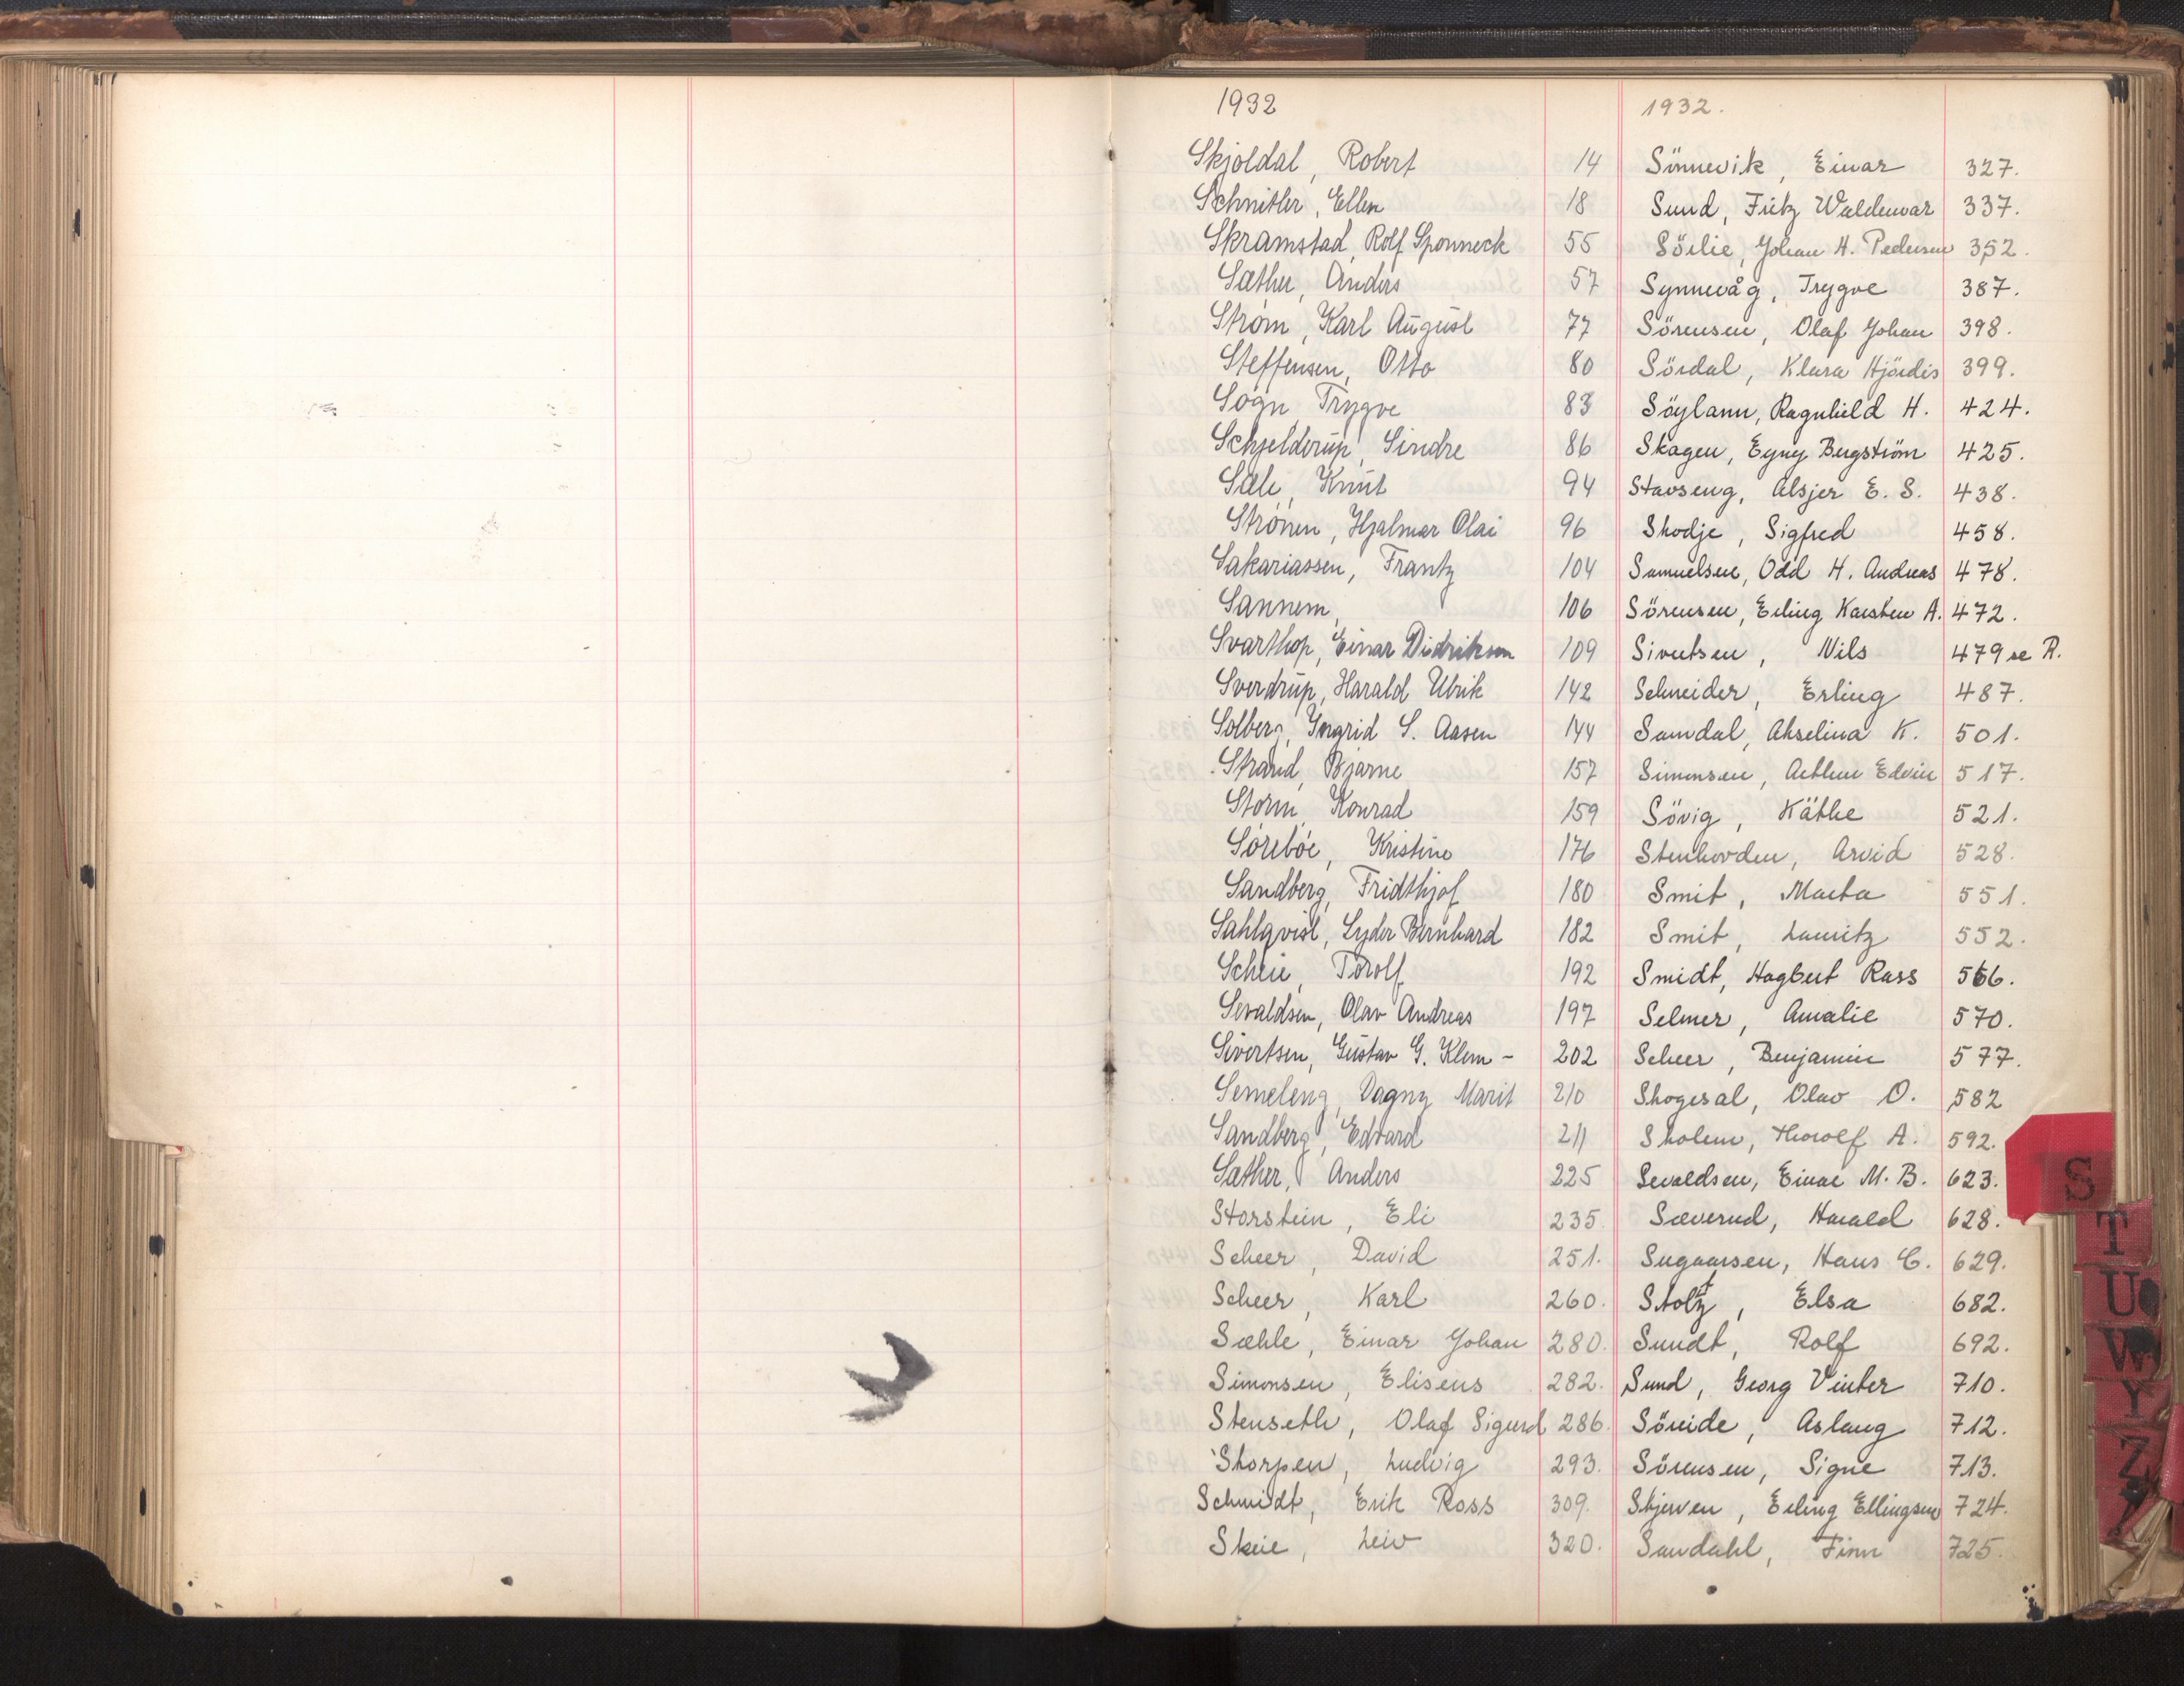 1932
Skjoldal, Robert 14
Schnitler, Ellen 18
Skramstad, Rolf Sponneck 55
Sæther, Anders 57
Strøm, Karl August 77
Steffensen, Otto 80
Sogn Trygve 83
Schjelderup, Sindre 86
Sæle, Knut 94
Strønen, Hjalmar Olai 96
Sakariassen, Frantz 104
Sannem, 106
Svarthop, Einar Didriksen 109
Sverdrup, Harald Ulrik 142
Solberg, Yngrid S. Aasen 144
Strand, Bjarne 157
Storm, Konrad 159
Sørebøe, Kristine 176
Sandberg, Fridthjof 180
Sahlqvist, Lyder Bernhard 182
Scheie, Torolf 192
Sevaldsen, Olav Andreas 197
Sivertsen, Gustav G. Klem - 202
Semeleng, Dagny Marit 210
Sandberg, Edvard 211
Sæther, Anders 225
Storstein, Eli 235
Scheer, David 251.
Scheer, Karl 260.
Sæhle, Einar Johan 280.
Simonsen, Eliseus 282.
Stenseth, Olaf Sigurd 286.
Skorpen, Ludvig 293.
Schmidt, Erik Ross 309.
Skeie, Leiv 320.
1932.
Sönnevik, Einar 327.
Sund, Fritz Waldemar 337.
Söilie, Johan H. Pedersen 352.
Synnevåg, Trygve 387.
Sörensen, Olaf Johan 398.
Sördal, Klara Hjördis 399.
Söylann, Ragnhild H. 424.
Skagen, Bergström 425.
Stavseng, Alsjer E. S. 438.
Skodje, Sigfred 458.
Samuelsen, Odd H. Andreas 478.
Sörensen, Erling Karsten A. 472.
Sivertsen, Nils 479 se R.
Schneider, Erling 487.
Samdal, Akselina K. 501.
Simonsen, Arthur Edvin 517.
Sövig, Käthe 521.
Stenhovden, Arvid 528.
Smit, Marta 551.
Smit, Lauritz 552.
Smidt, Hagbert Rass 566.
Selmer, Amalie 570.
Scheer, Benjamin 577.
Skogesal, Olav O. 582
Skolem, Thorolf A. 592.
Sevaldsen, Einar M. B. 623.
Sæverud, Harald 628.
Sugaarsen, Hans C. 629.
Stoltz, Elsa 682.
Sundt, Rolf 692.
Sund, Georg Vinter 710.
Söreide, Aslaug 712.
Sörensen, Signe 713.
Skjerven, Erling Ellingsen 724.
Sandahl, Finn 725.
S
T
U
W
Y
Z